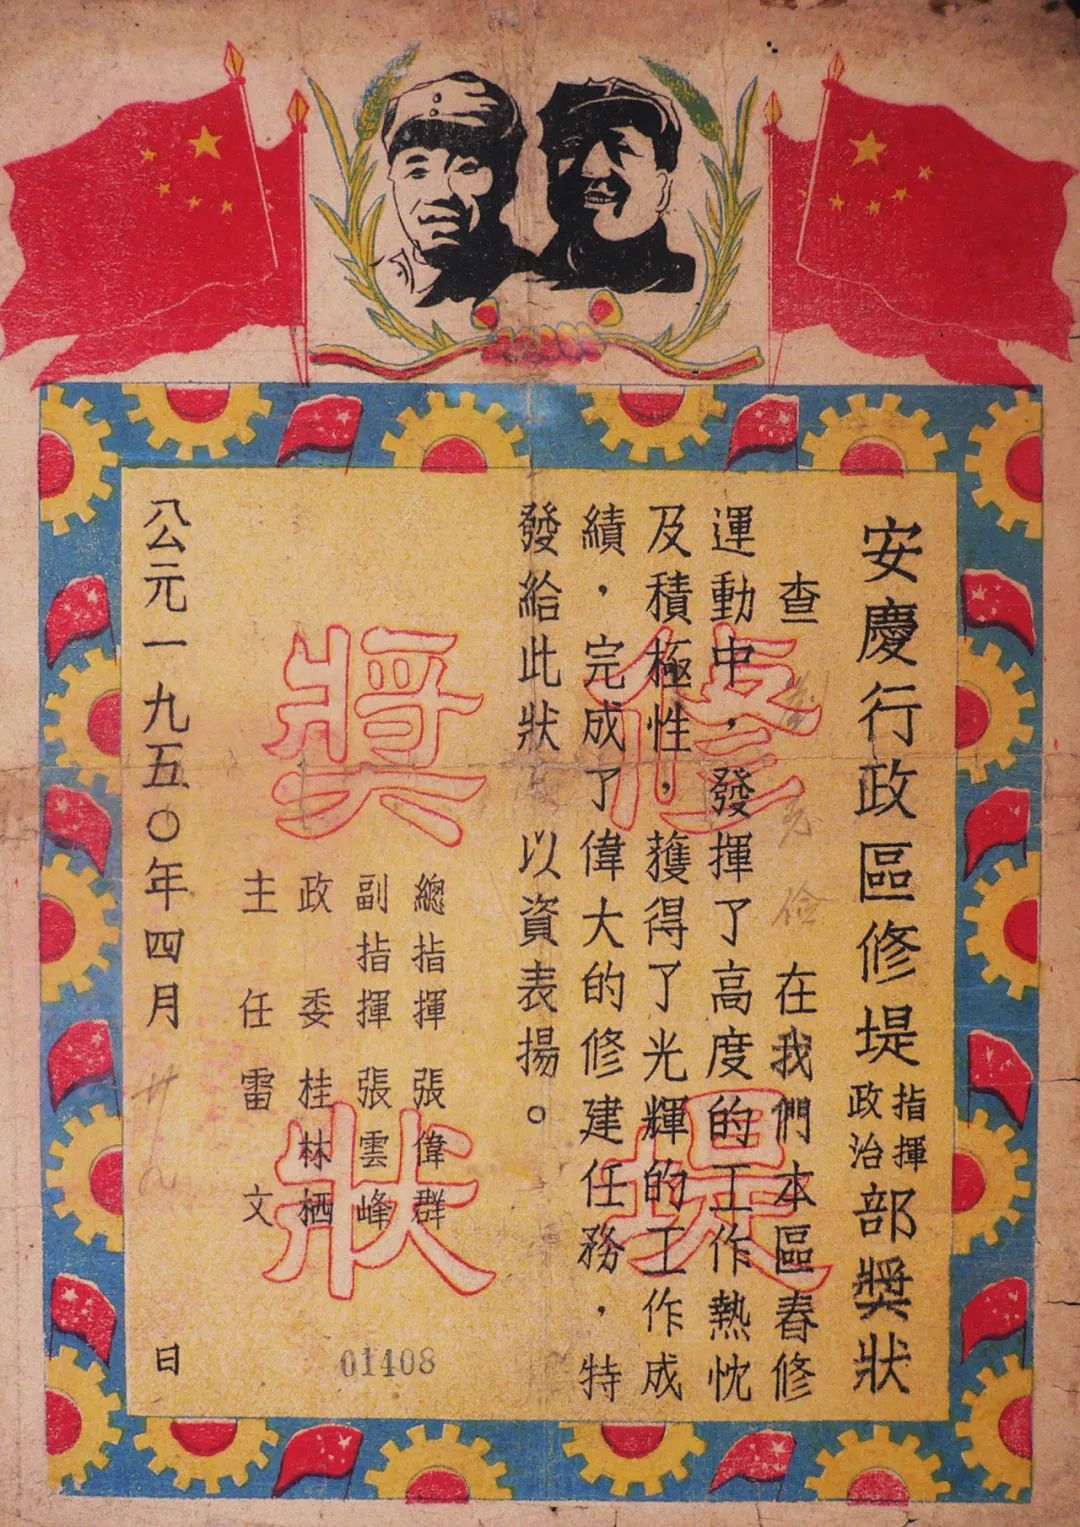 安慶行政區修堤指揮政治部獎狀
查 克儉 在我們本區春修
運動中，發揮了高度的工作熱忱
及積極性，獲得了光輝的工作成
績，完成了偉大的修建任務，特
發給此狀 以資表揚。
總指揮 張偉群
副指揮 張雲峰
政委 桂林栖
主任 雷文
公元一九五〇年四月廿九日
01408
修堤
獎狀